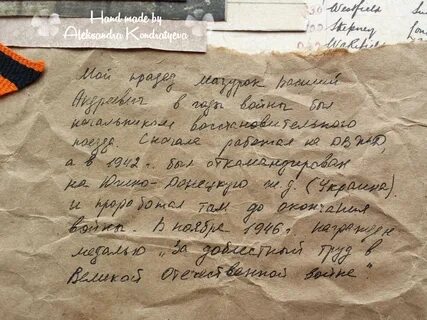 Hand made by
Aleksandra Kondratyeva
Westfield
Stepney
Wakefield
Мой прадед Мазурок Василий
Андреевич в годы войны был
начальником восстановительного
поезда. Сначала работал на ДВЖД,
а в 1942 г. был откомандирован
на Южно-Донецкую ж.д. (Украина)
и проработал там до окончания
войны. В ноябре 1946 г. награжден
медалью „За доблестный труд в
Великой Отечественной войне"